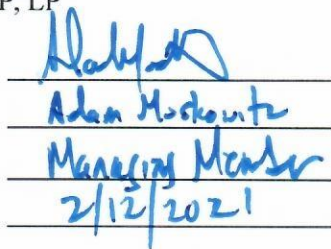 P, LP
Adam Moskowitz
Managing Member
2/12/2021